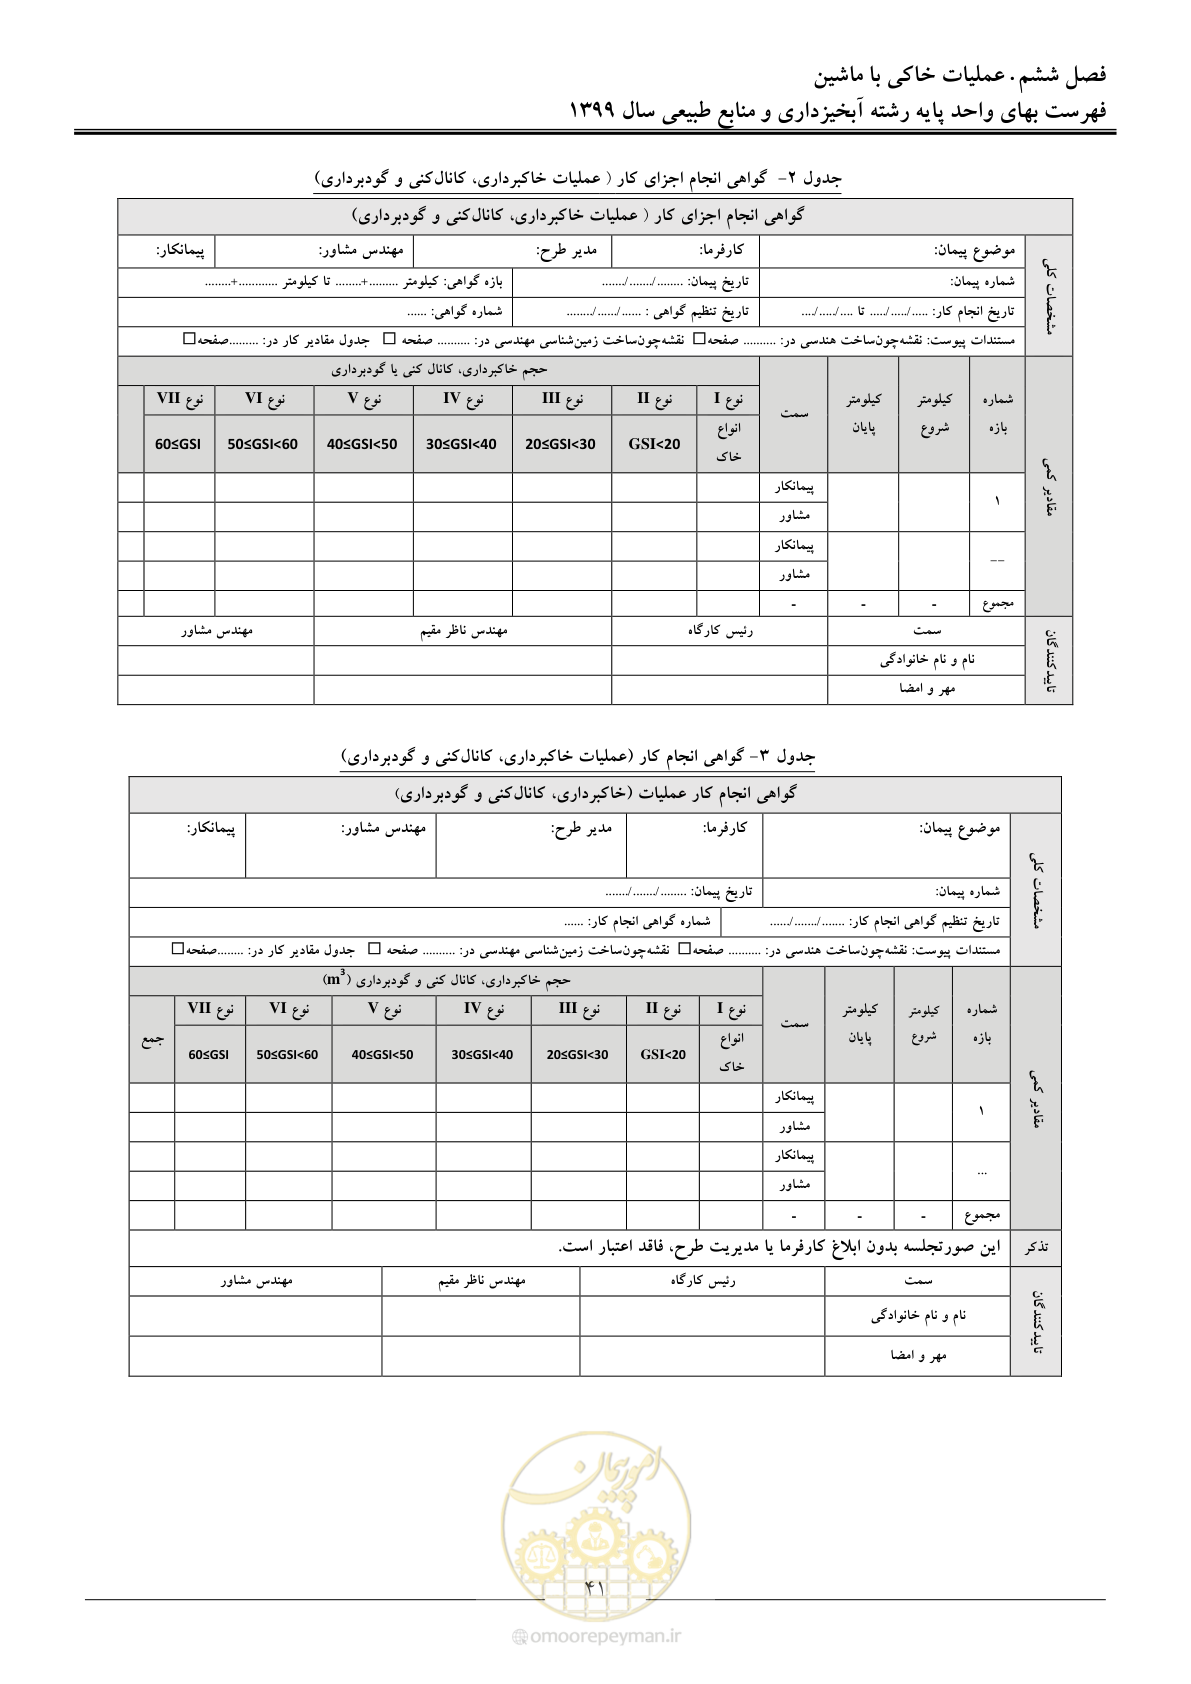 فصل ششم. عملیات خاکی با ماشین
فهرست بهای واحد پایه رشته آبخیزداری و منابع طبیعی سال ۱۳۹۹
جدول ۲- گواهی انجام اجزای کار ( عملیات خاکبرداری، کانال‌کنی و گودبرداری)
گواهی انجام اجزای کار ( عملیات خاکبرداری، کانال‌کنی و گودبرداری)
مشخصات کلی
موضوع پیمان: کارفرما: مدیر طرح: مهندس مشاور: پیمانکار:
شماره پیمان: تاریخ پیمان: ......../......./....... بازه گواهی: کیلومتر .........+........ تا کیلومتر ...........+........
تاریخ انجام کار: ...../...../..... تا ..../...../.... تاریخ تنظیم گواهی : ....../....../........ شماره گواهی: ......
مستندات پیوست: نقشه‌چون‌ساخت هندسی در: .......... صفحه☐ نقشه‌چون‌ساخت زمین‌شناسی مهندسی در: .......... صفحه ☐ جدول مقادیر کار در: .........صفحه☐
مقادیر کمی
شماره بازه کیلومتر شروع کیلومتر پایان سمت حجم خاکبرداری، کانال کنی یا گودبرداری
نوع I نوع II نوع III نوع IV نوع V نوع VI نوع VII
انواع خاک GSI<20 20≤GSI<30 30≤GSI<40 40≤GSI<50 50≤GSI<60 60≤GSI
۱ پیمانکار
مشاور
__ پیمانکار
مشاور
مجموع - - -
تاییدکنندگان
سمت رئیس کارگاه مهندس ناظر مقیم مهندس مشاور
نام و نام خانوادگی
مهر و امضا
جدول ۳- گواهی انجام کار (عملیات خاکبرداری، کانال‌کنی و گودبرداری)
گواهی انجام کار عملیات (خاکبرداری، کانال‌کنی و گودبرداری)
مشخصات کلی
موضوع پیمان: کارفرما: مدیر طرح: مهندس مشاور: پیمانکار:
شماره پیمان: تاریخ پیمان: ......../......./.......
تاریخ تنظیم گواهی انجام کار: ......./......./...... شماره گواهی انجام کار: ......
مستندات پیوست: نقشه‌چون‌ساخت هندسی در: .......... صفحه☐ نقشه‌چون‌ساخت زمین‌شناسی مهندسی در: .......... صفحه ☐ جدول مقادیر کار در: ........صفحه☐
مقادیر کمی
شماره بازه کیلومتر شروع کیلومتر پایان سمت حجم خاکبرداری، کانال کنی و گودبرداری (m³)
نوع I نوع II نوع III نوع IV نوع V نوع VI نوع VII جمع
انواع خاک GSI<20 20≤GSI<30 30≤GSI<40 40≤GSI<50 50≤GSI<60 60≤GSI
۱ پیمانکار
مشاور
... پیمانکار
مشاور
مجموع - - -
تذکر این صورتجلسه بدون ابلاغ کارفرما یا مدیریت طرح، فاقد اعتبار است.
تاییدکنندگان
سمت رئیس کارگاه مهندس ناظر مقیم مهندس مشاور
نام و نام خانوادگی
مهر و امضا
امور پیمان
۴۱
omoorepeyman.ir